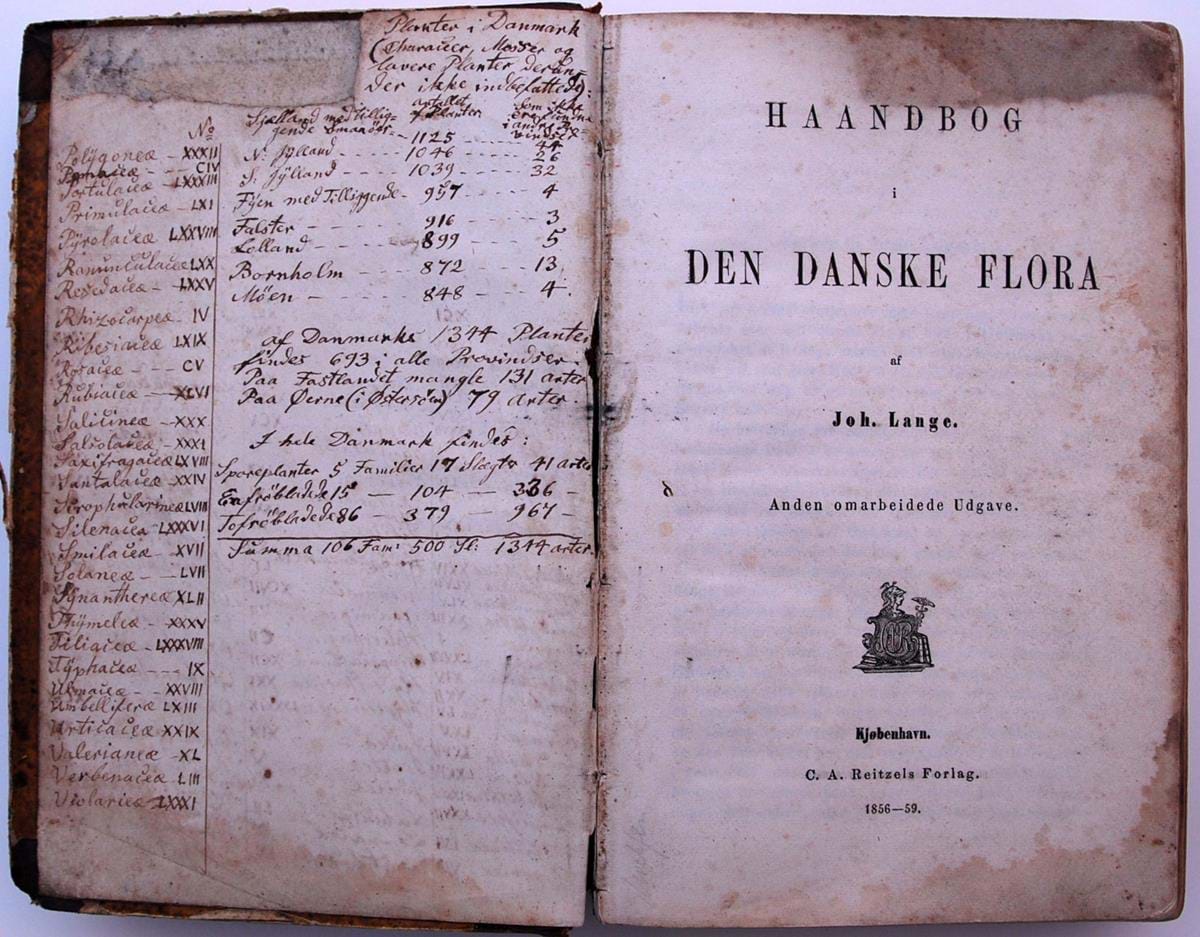 Planter i Danmark
(Characeer, Mosser og
lavere Planter derun-
der ikke indbefattede):
antallet
af Planter
som ikke
ere fundne
i andre Pro-
vindser
Sjælland med tillig-
gende Smaaöer - - 1125 - - 44
N: Jÿlland - - - - - 1046 - - - 26
S. Jÿlland - - - - 1039 - - - 32
Fÿen med Tilliggende - 957 - - - 4
Falster - - - - - - 916 - - - 3
Lolland - - - - - 899 - - - 5
Bornholm - - - - 872 - - - 13
Möen - - - - - - 848 - - - 4.
af Danmarks 1344 Planter
findes 693 i alle Provindser.
Paa Fastlandet mangle 131 arter
Paa Øerne (i Østersöen) 79 arter.
I hele Danmark findes:
Sporeplanter 5 Familier 17 Slægter 41 arter
Enfröbladede 15 — 104 — 336 —
Tofröbladede 86 — 379 — 967 —
Summa 106 Fam: 500 Sl: 1344 arter
No
Polÿgoneæ - XXXII
Pomaceæ - - - CIV
Portulaceæ - LXXXIII
Primulaceæ - LXI
Pÿrolaceæ LXXVIII
Ranunculaceæ LXX
Resedaceæ - LXXV
Rhizocarpeæ - IV
Ribesiaceæ LXIX
Rosaceæ - - - CV
Rubiaceæ - XLVI
Salicineæ - XXX
Salsolaceæ - XXXI
Saxifragaceæ LXVIII
Santalaceæ - XXIV
Scrophularineæ LVIII
Silenaceæ LXXXVI
Smilaceæ - XVII
Solaneæ - - LVII
Sÿnanthereæ XLII
Thÿmeleæ - XXXV
Tiliaceæ - LXXXVIII
Tÿphaceæ - - - IX
Ulmaceæ - - XXVIII
Umbelliferæ LXIII
Urticaceæ XXIX
Valerianeæ - XL
Verbenaceæ LIII
Violarieæ - LXXXI
HAANDBOG
i
DEN DANSKE FLORA
af
Joh. Lange.
Anden omarbeidede Udgave.
CAR
Kjøbenhavn.
C. A. Reitzels Forlag.
1856—59.